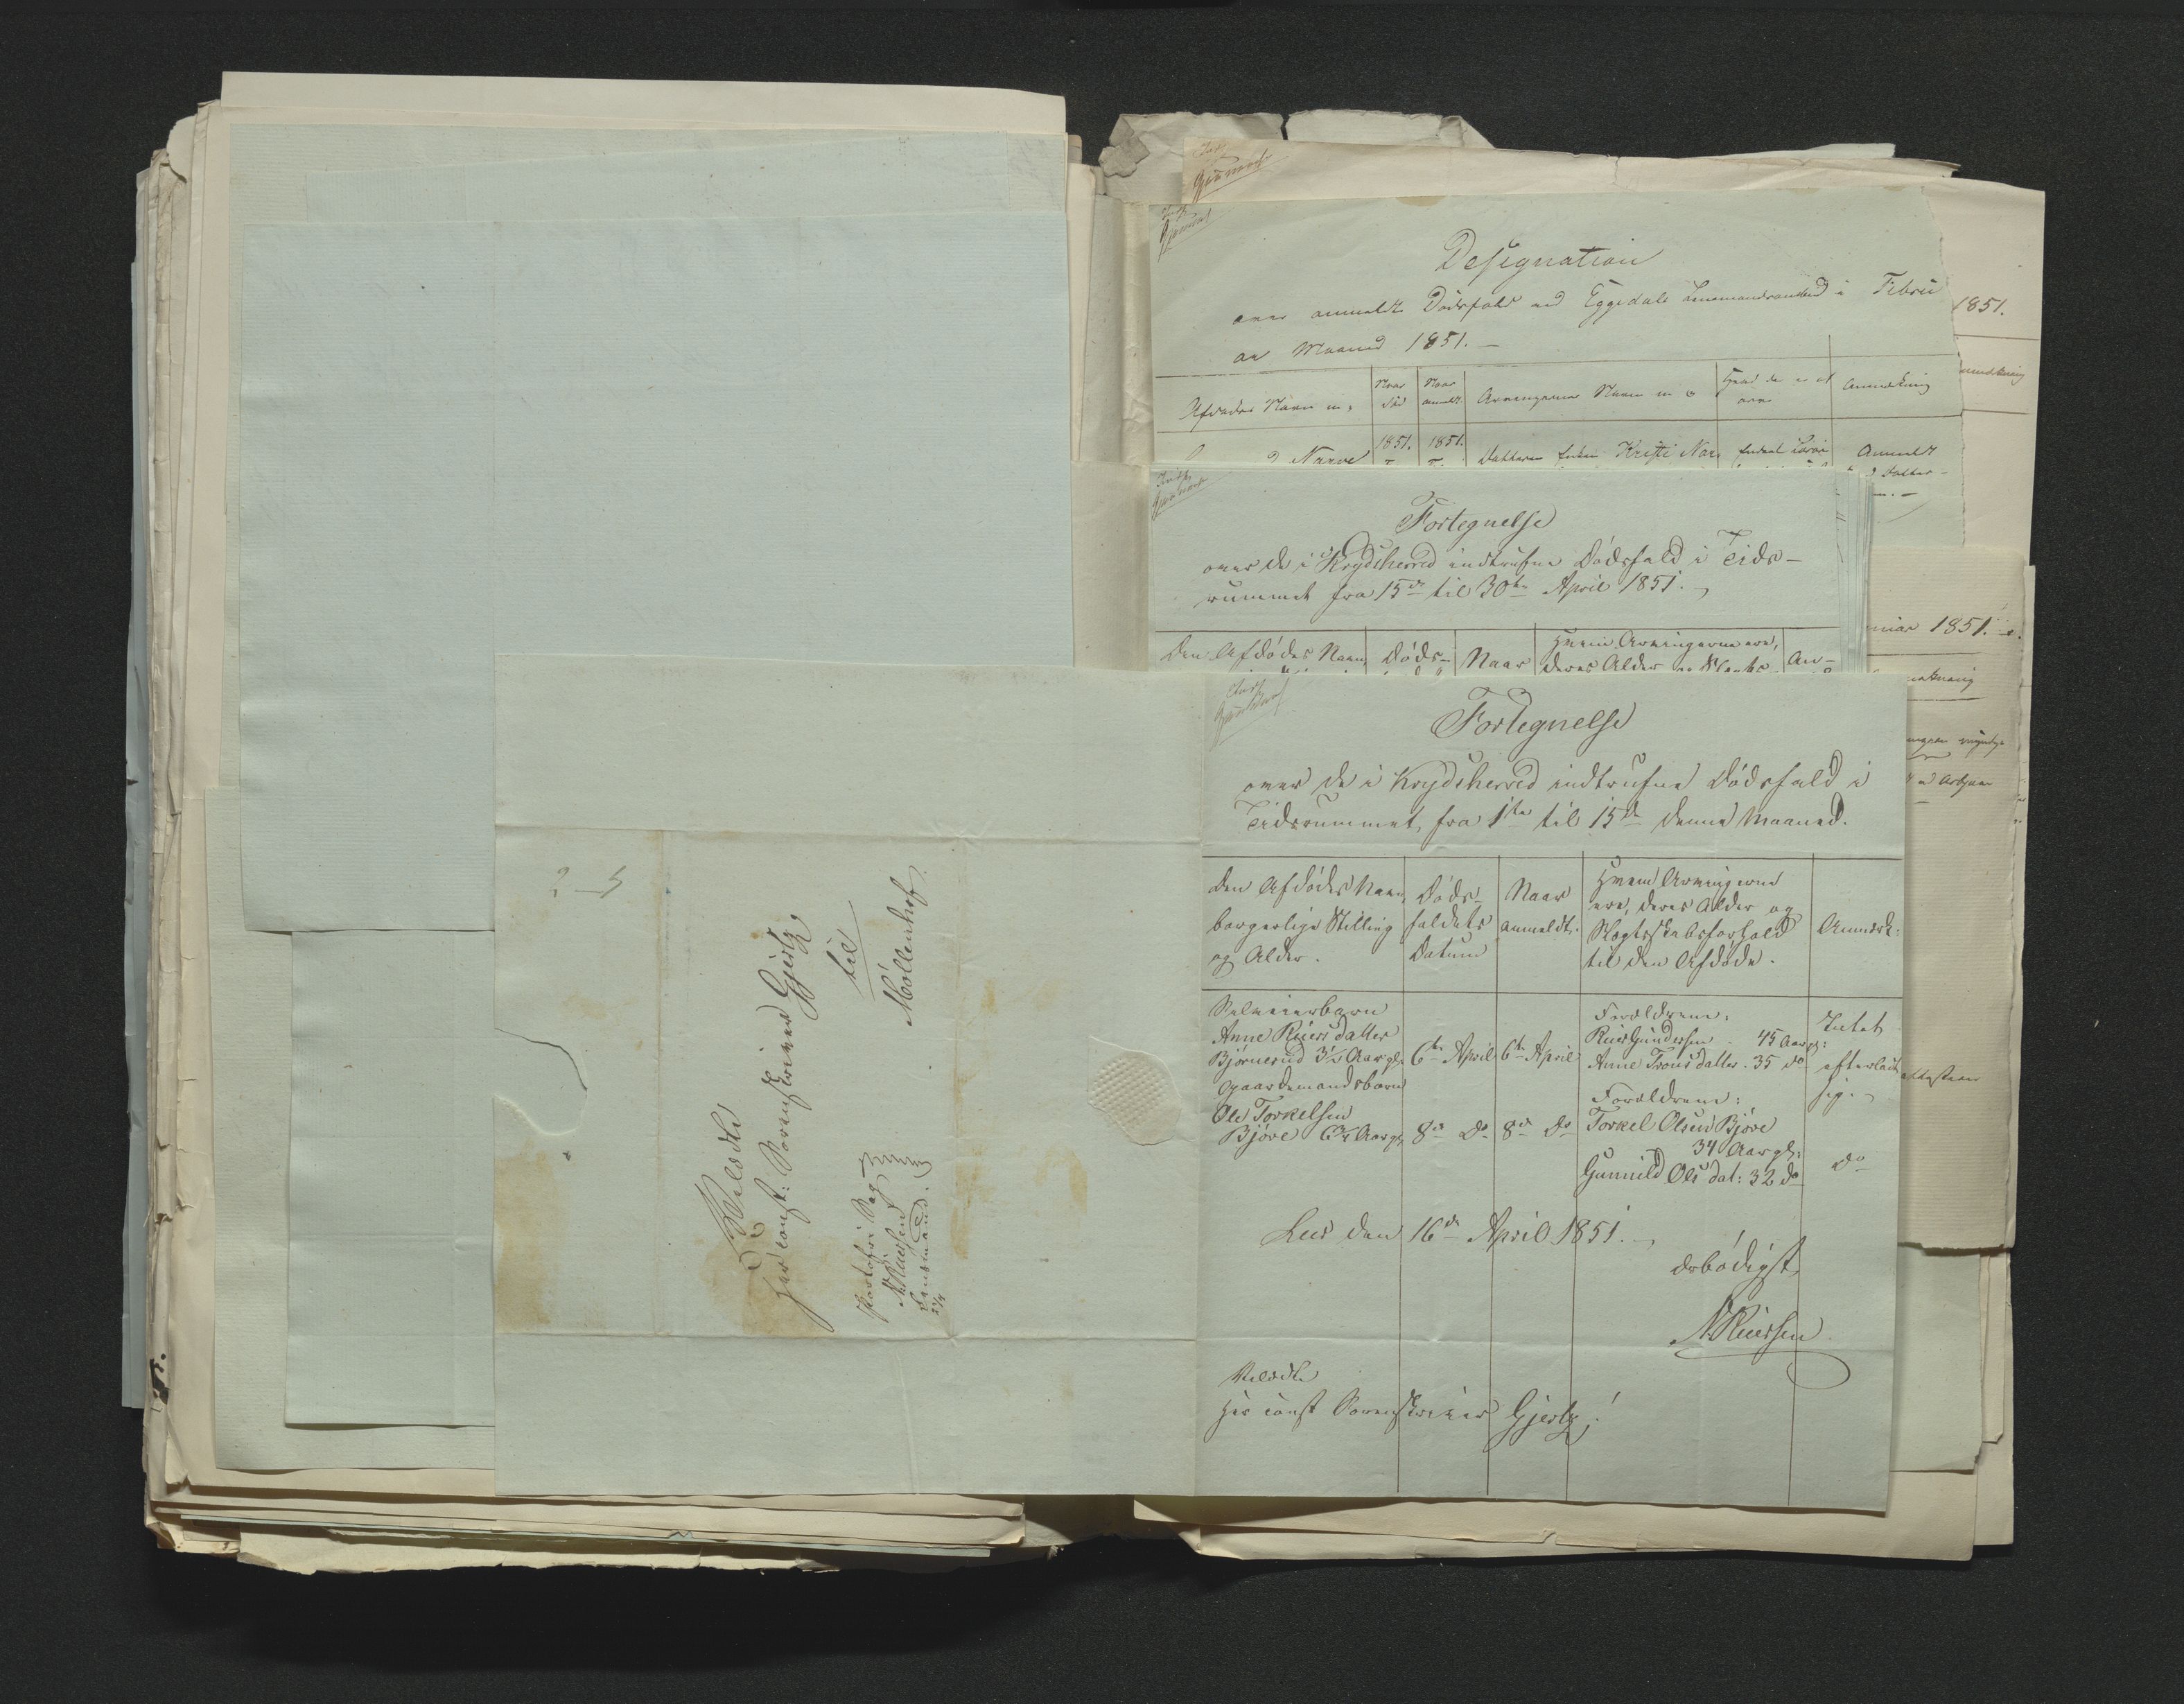 Designation
over anmeldte Dødsfald ved Eggedals Lensmandsombud i Febru
ar Maaned 1851. —
Afdødes Navn m, | Naar død | Naar anmeldt | Arvingernes Navn m v | Hvad de ere | Anmærkning
Narve | 1851. | 1851. | Datteren Enken Kristi Nar | Anmeldt
Datter-
1851.
Fortegnelse
over de i Krydsherred indtrufne Dødsfald i Tids-
rummet fra 15de til 30te April 1851.
Den Afdødes Navn, | Døds- | Naar | Hvem Arvingerne ere, | An-
deres Alder og Slægts-
1851.
Fortegnelse
over de i Krydsherred indtrufne Dødsfald i
Tidsrummet, fra 1ste til 15de denne Maaned.
Den Afdødes Navn, borgerlige Stilling og Alder. | Døds- faldets Datum | Naar anmeldt. | Hvem Arvingerne ere, deres Alder og Slægtskabsforhold til den Afdøde. | Anmærk:
Selveierbarn
Anne Ruersdatter
Bjørnerud 3½ Aar gl. | 6te April | 6te April | Forældrene:
Ruer Gundersen 45 Aar gl:
Anne Tronsdatter. 35 do | Intet
efterladt
sig.
Gaardmandsbarn
Ole Torkelsen
Bjøre 6¾ Aar gl. | 8de do | 8de do | Forældrene:
Torkel Olsen Bjøre
34 Aar gl:
Gunnild Ols dat: 32 do | do
Leer den 16de April 1851.
Ærbødigst,
N. Ruersen
Velædle
Hr const Sorenskriver Gjertz!
2–5
Velædle
Herr const: Sorenskriver Gjertz
til
Møllenhof.
Portofri Sag
N. Ruersen
Lensmand.